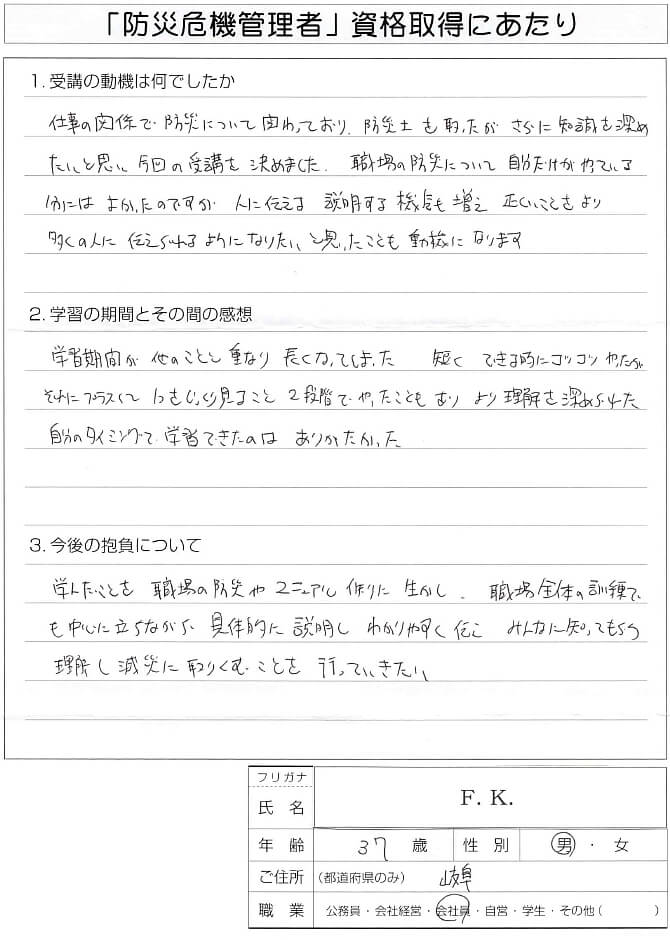 「防災危機管理者」資格取得にあたり
1. 受講の動機は何でしたか
仕事の関係で 防災について 関わっており、防災士 も 取ったが さらに 知識を深め
たいと思い 今回の受講を 決めました. 職場の防災について 自分だけが やっている
分には よかったのですが 人に伝える 説明する 機会も 増え 正しいことをより
多くの人に 伝えられるようになりたいと思ったことも 動機に なります
2. 学習の期間とその間の感想
学習期間が 他のことと 重なり 長くなってしまった 短く できる時にコツコツ やったが
それにプラスして じっくり見ること 2段階で やったことも あり より 理解を 深められた
自分のタイミングで 学習できたのは ありがたかった
3. 今後の抱負について
学んだことを 職場の防災や マニュアル 作りに 生かし、 職場全体の訓練で
も中心に立ちながら 具体的に 説明し わかりやすく伝え みんなに知ってもらう
理解し 減災に 取りくむ ことを 行っていきたい
フリガナ
氏 名 F. K.
年 齢 37 歳 性 別 男 ・ 女
ご住所 (都道府県のみ) 岐阜
職 業 公務員・会社経営・会社員・自営・学生・その他 ( )